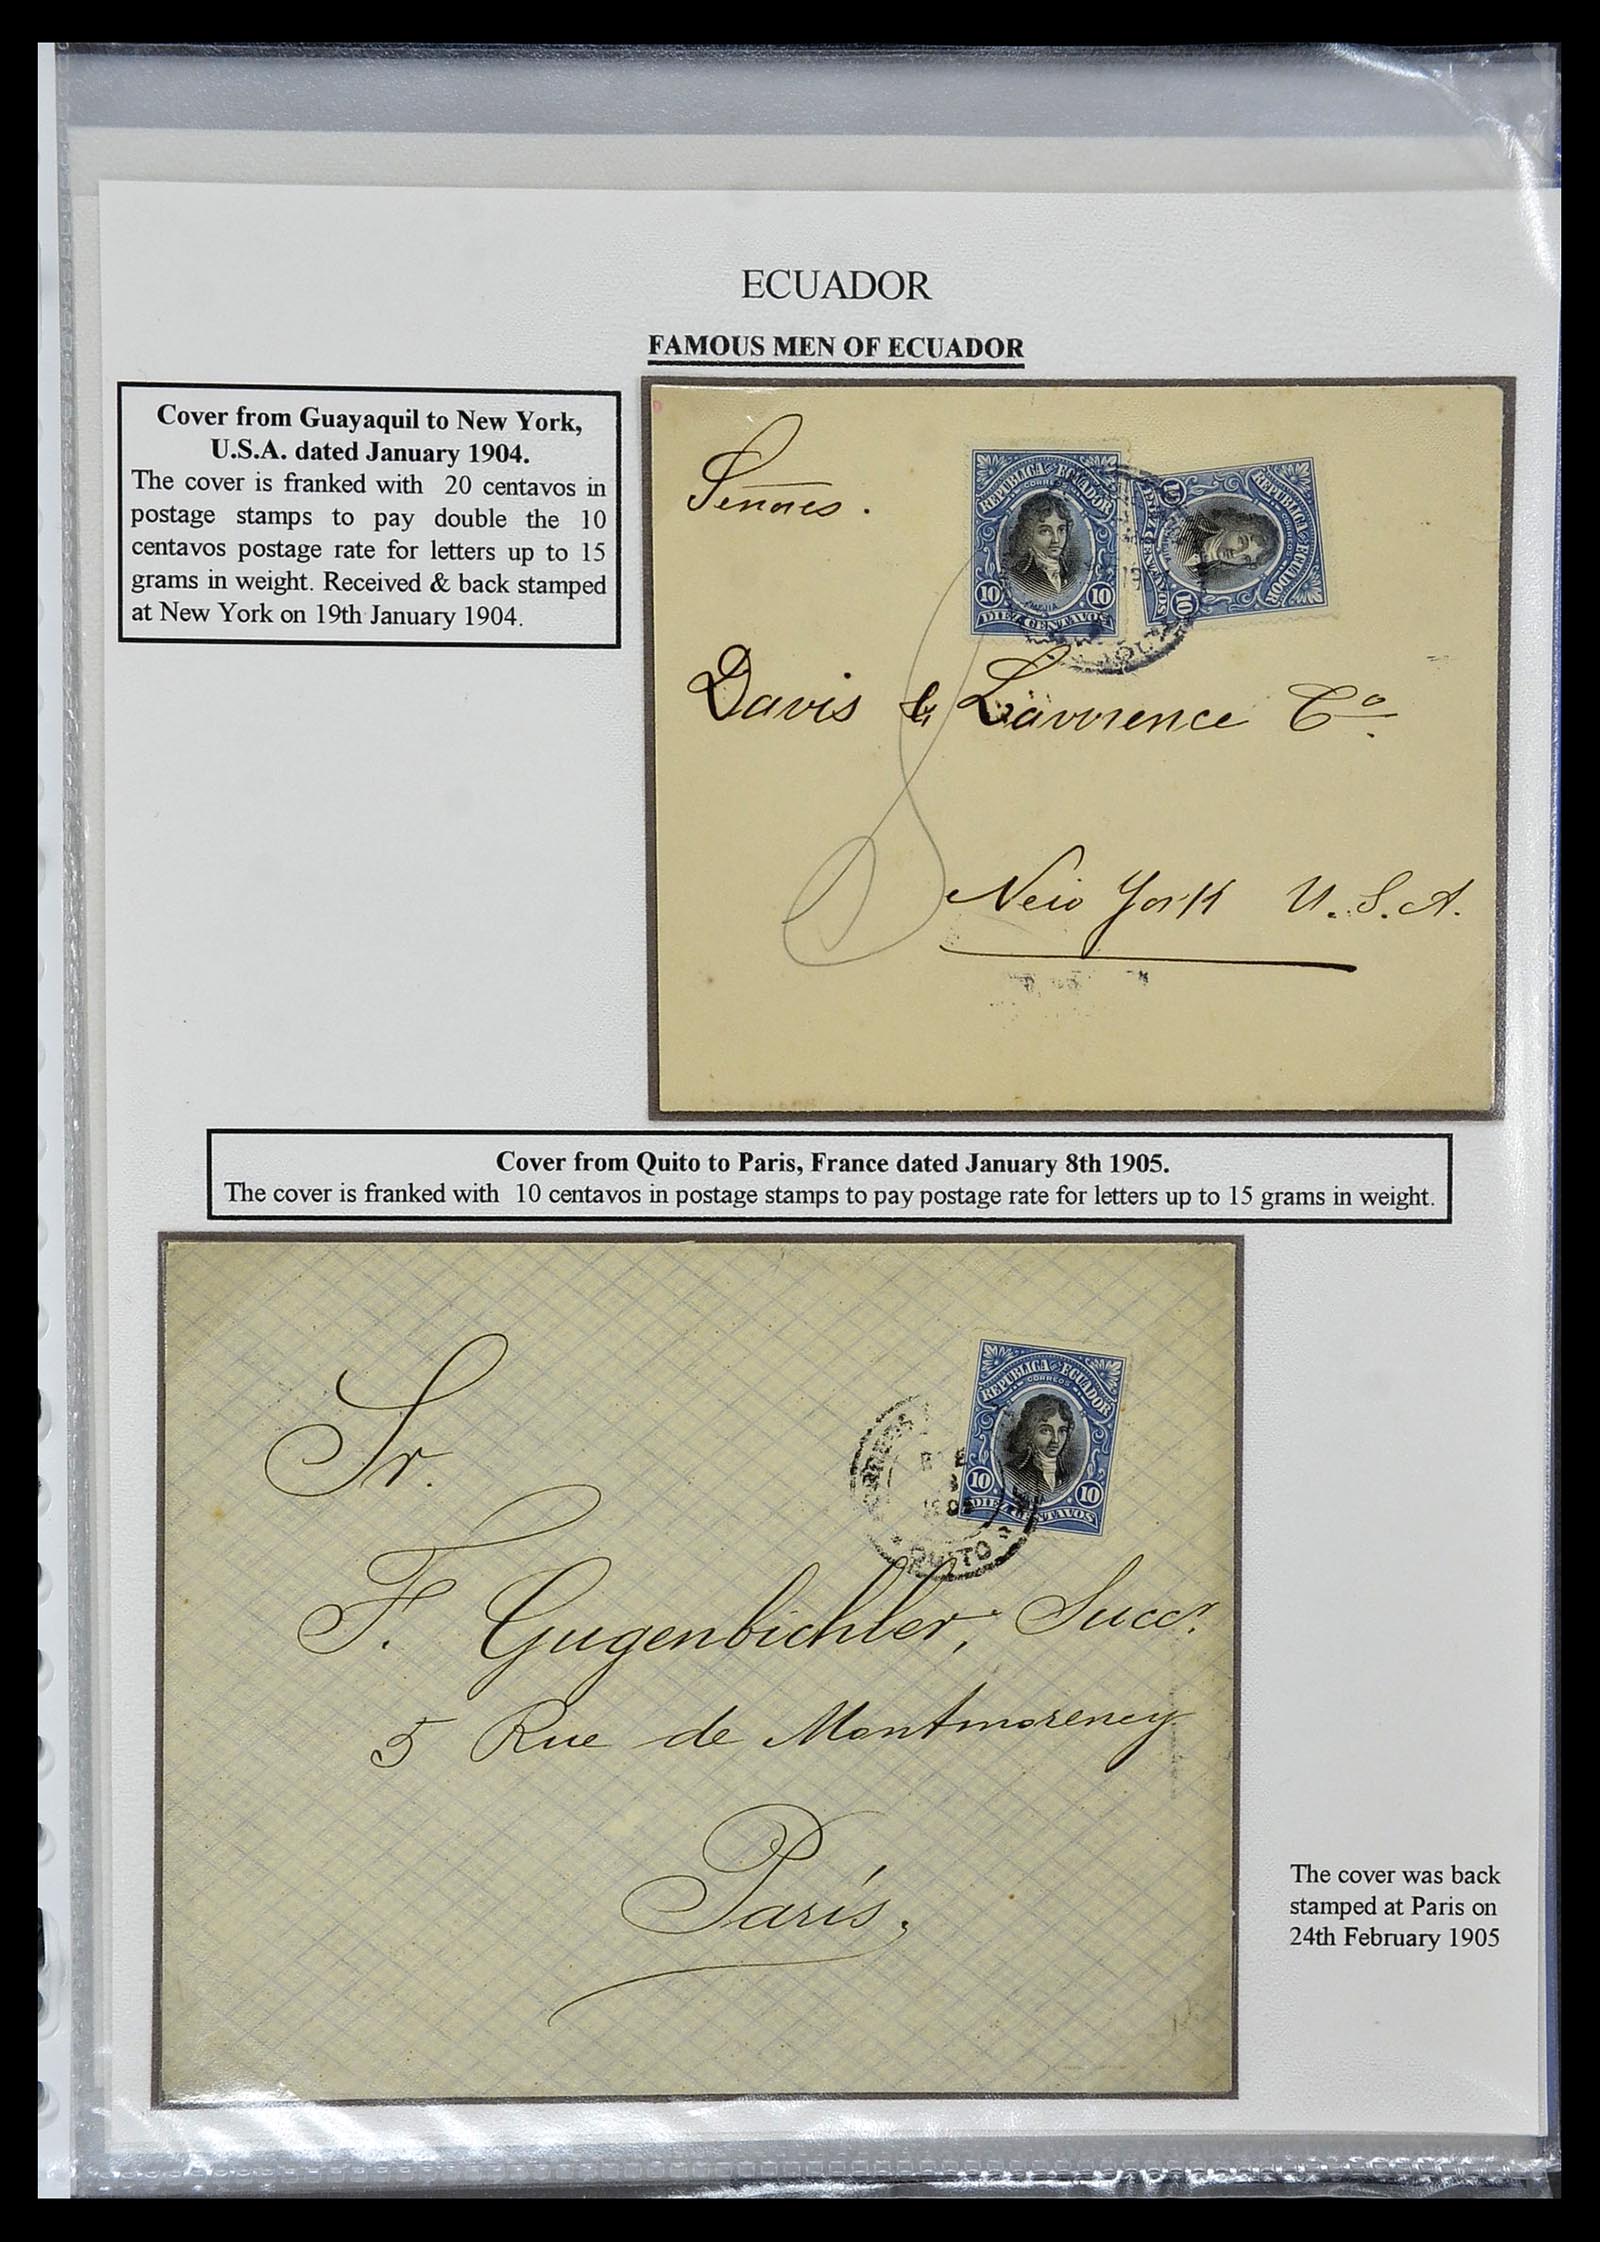 ECUADOR
FAMOUS MEN OF ECUADOR
Cover from Guayaquil to New York,
U.S.A. dated January 1904.
The cover is franked with 20 centavos in
postage stamps to pay double the 10
centavos postage rate for letters up to 15
grams in weight. Received & back stamped
at New York on 19th January 1904.
Señores.
REPUBLICA DEL ECUADOR
CORREOS
10 10
DIEZ CENTAVOS
REPUBLICA DEL ECUADOR
CORREOS
10 10
DIEZ CENTAVOS
Davis & Lawrence Co.
New York U.S.A.
Cover from Quito to Paris, France dated January 8th 1905.
The cover is franked with 10 centavos in postage stamps to pay postage rate for letters up to 15 grams in weight.
REPUBLICA DEL ECUADOR
CORREOS
10 10
DIEZ CENTAVOS
QUITO
Sr.
F. Gugenbichler, Succr.
5 Rue de Montmorency
París.
The cover was back
stamped at Paris on
24th February 1905